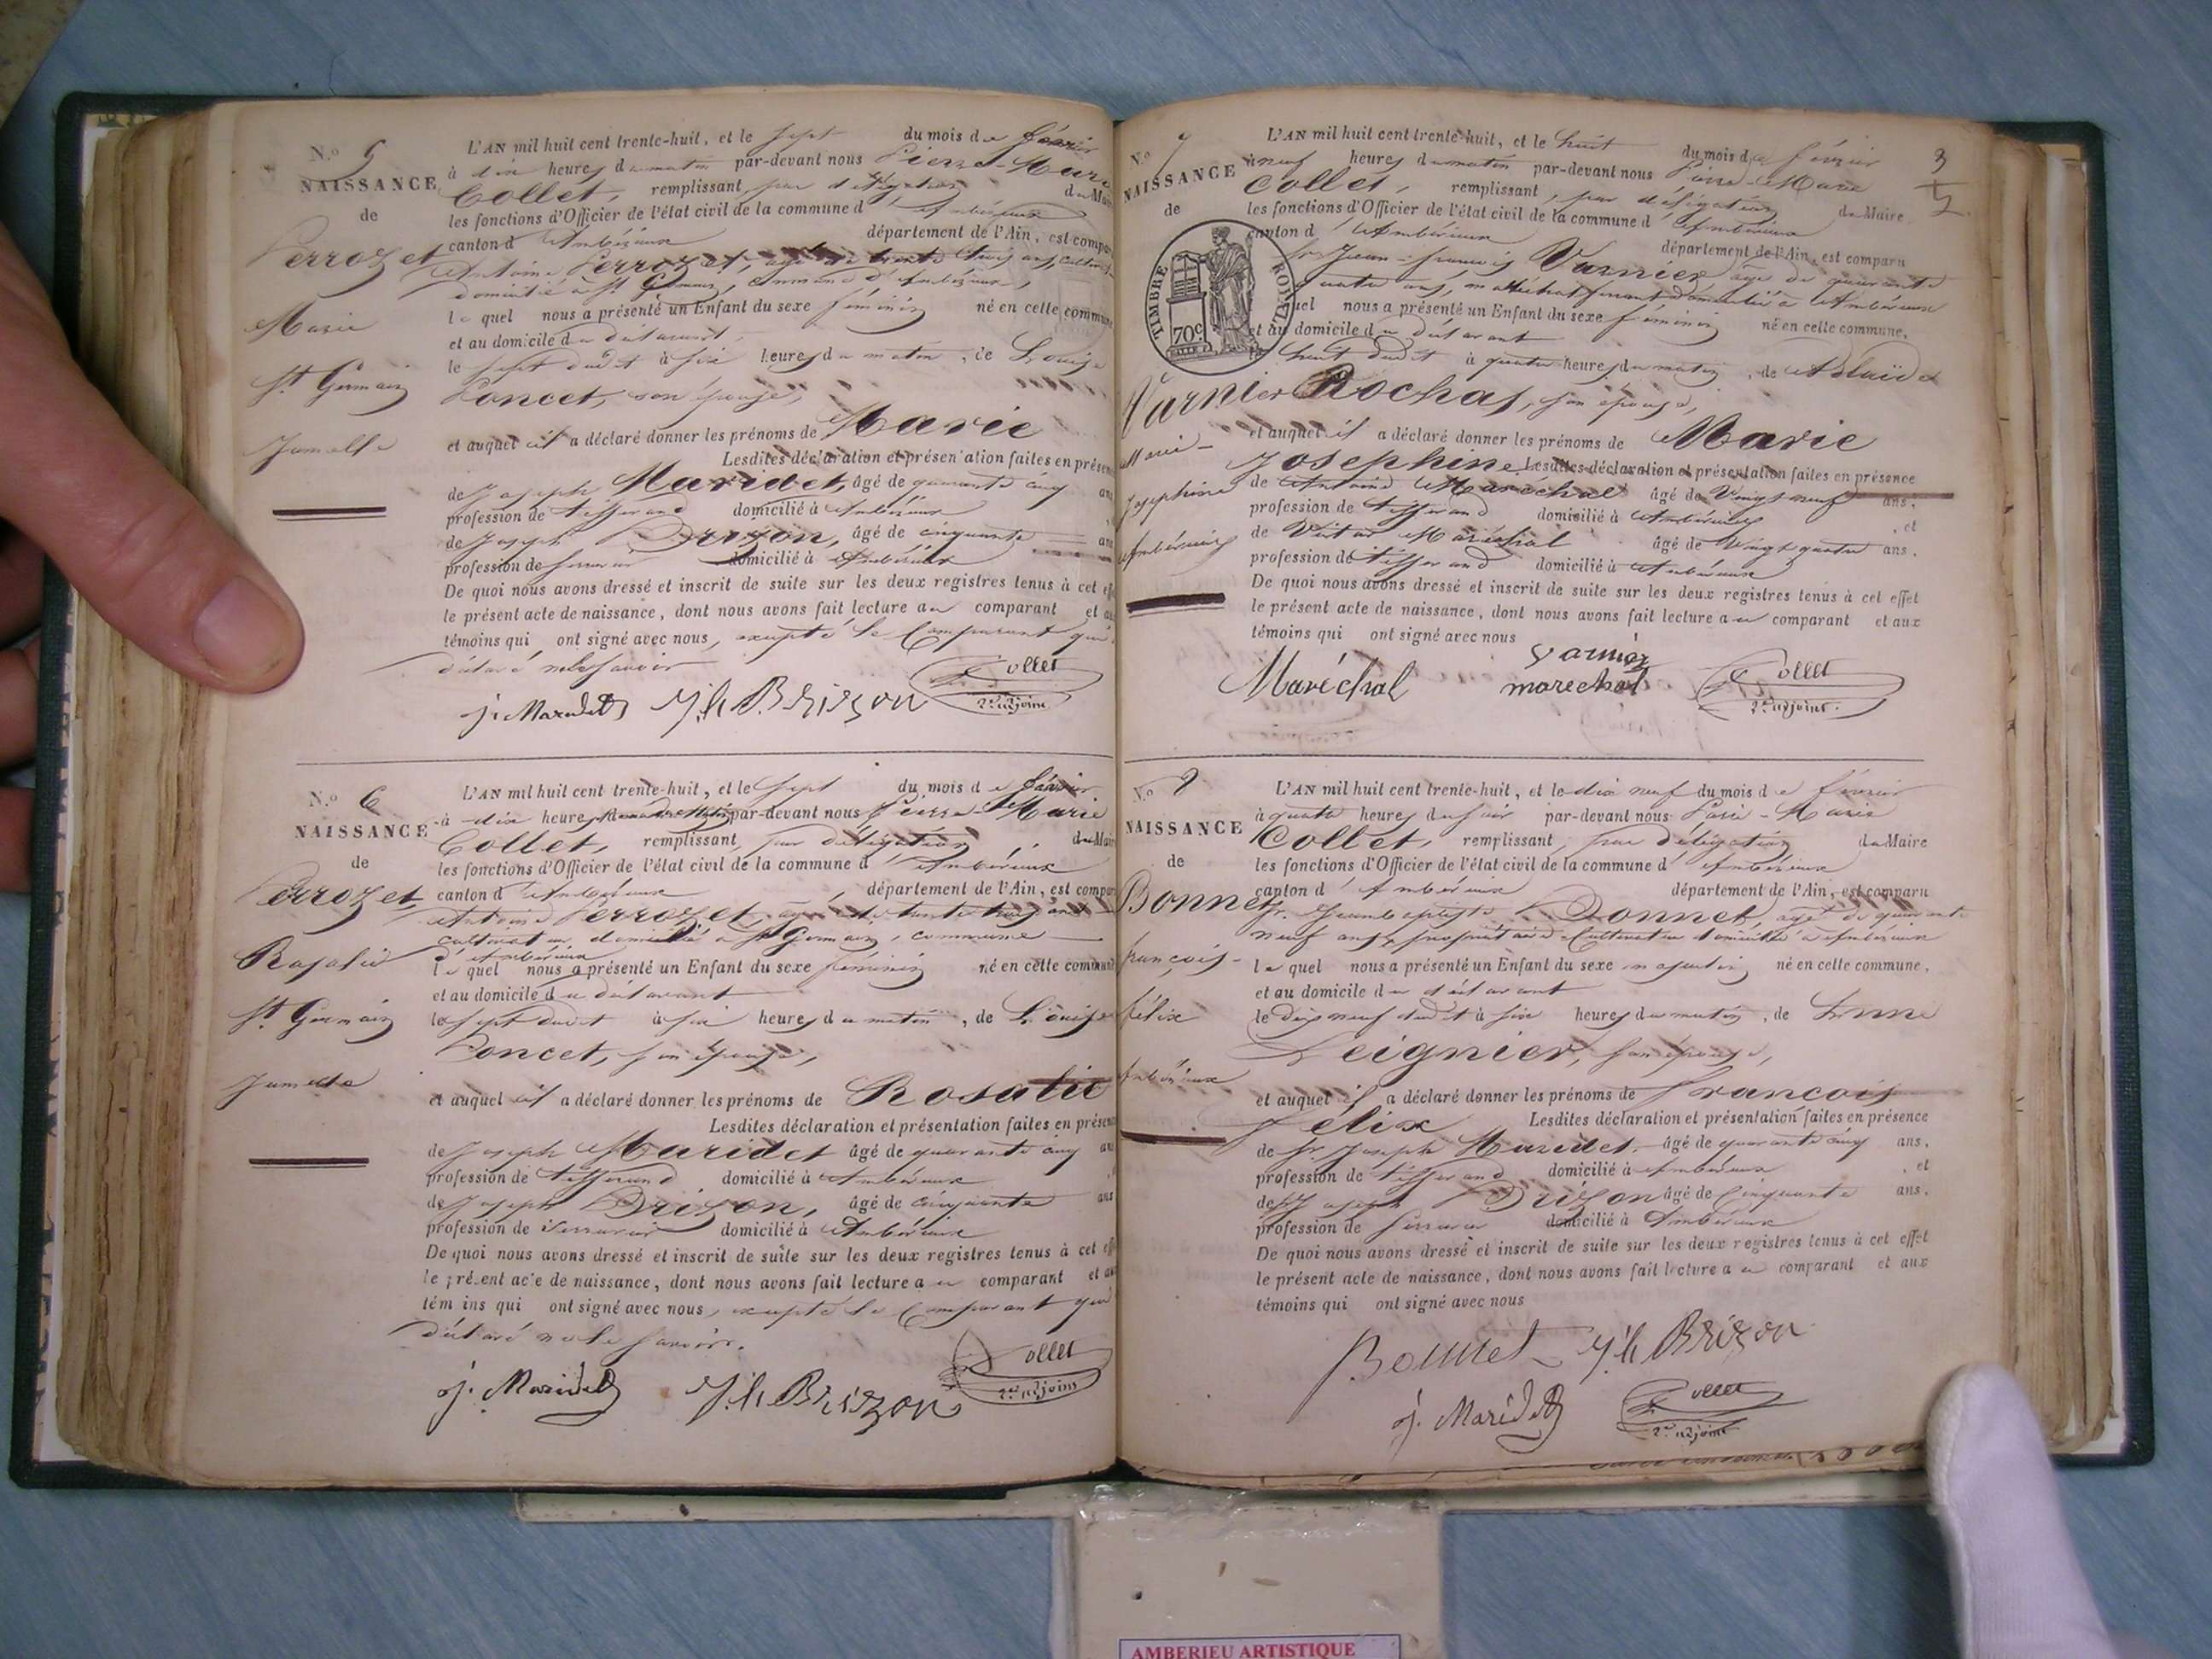 N.o 5
NAISSANCE
de
Perrozet
Marie
St Germain
Jumelle
L'AN mil huit cent trente-huit, et le sept du mois de février
à dix heures du matin par-devant nous Pierre-Marie
Collet, remplissant, par délégation du Maire
les fonctions d'Officier de l'état civil de la commune d'Ambérieux
canton d'Ambérieux département de l'Ain, est comparu
Antoine Perrozet, âgé de trente trois ans, cultivateur
domicilié à St Germain, commune d'Ambérieux,
lequel nous a présenté un Enfant du sexe féminin né en cette commune
et au domicile du déclarant,
le sept dudit à six heures du matin, de Louise
Poncet, son épouse,
et auquel il a déclaré donner les prénoms de Marie
Lesdites déclaration et présentation faites en présence
de Joseph Maridet, âgé de quarante cinq ans
profession de tisserand domicilié à Ambérieux
de Joseph Brizon, âgé de cinquante ans
profession de serrurier domicilié à Ambérieux
De quoi nous avons dressé et inscrit de suite sur les deux registres tenus à cet effet
le présent acte de naissance, dont nous avons fait lecture au comparant et aux
témoins qui ont signé avec nous, excepté le Comparant qui a
déclaré ne le savoir
j. Maridet Jh Brizon Collet
2e adjoint
N.o 6
NAISSANCE
de
Perrozet
Rosalie
St Germain
Jumelle
L'AN mil huit cent trente-huit, et le sept du mois de février
à dix heures du matin par-devant nous Pierre-Marie
Collet, remplissant, par délégation du Maire
les fonctions d'Officier de l'état civil de la commune d'Ambérieux
canton d'Ambérieux département de l'Ain, est comparu
Antoine Perrozet, âgé de trente trois ans
cultivateur, domicilié à St Germain, commune
d'Ambérieux
lequel nous a présenté un Enfant du sexe féminin né en cette commune
et au domicile du déclarant
le sept dudit à six heures du matin, de Louise
Poncet, son épouse,
et auquel il a déclaré donner les prénoms de Rosalie
Lesdites déclaration et présentation faites en présence
de Joseph Maridet âgé de quarante cinq ans
profession de tisserand domicilié à Ambérieux
de Joseph Brizon, âgé de cinquante ans
profession de serrurier domicilié à Ambérieux
De quoi nous avons dressé et inscrit de suite sur les deux registres tenus à cet effet
le présent acte de naissance, dont nous avons fait lecture au comparant et aux
témoins qui ont signé avec nous, excepté le Comparant qui a
déclaré ne le savoir.
j. Maridet Jh Brizon Collet
2e adjoint
3
N.o 7
NAISSANCE
de
Varnier
Marie-
Josephine
Ambérieux
TIMBRE ROYAL
70c
L'AN mil huit cent trente-huit, et le huit du mois de février
à neuf heures du matin par-devant nous Pierre-Marie
Collet, remplissant, par délégation du Maire
les fonctions d'Officier de l'état civil de la commune d'Ambérieux
canton d'Ambérieux département de l'Ain, est comparu
Sr Jean-françois Varnier âgé de quarante
quatre ans, maréchal ferrant, domicilié à Ambérieux
lequel nous a présenté un Enfant du sexe féminin né en cette commune,
et au domicile du déclarant
le huit dudit à quatre heures du matin, de Adelaïde
Rochas, son épouse,
et auquel il a déclaré donner les prénoms de Marie
Josephine Lesdites déclaration et présentation faites en présence
de Antoine Maréchal âgé de Vingt neuf ans,
profession de tisserand domicilié à Ambérieux, et
de Victor Maréchal âgé de Vingt quatre ans.
profession de tisserand domicilié à Ambérieux
De quoi nous avons dressé et inscrit de suite sur les deux registres tenus à cet effet
le présent acte de naissance, dont nous avons fait lecture au comparant et aux
témoins qui ont signé avec nous
Varnier
Maréchal marechal Collet
2e adjoint.
N.o 8
NAISSANCE
de
Bonnet
françois-
félix
Ambérieux
L'AN mil huit cent trente-huit, et le dix neuf du mois de février
à quatre heures du soir par-devant nous Pierre-Marie
Collet, remplissant, par délégation du Maire
les fonctions d'Officier de l'état civil de la commune d'Ambérieux
canton d'Ambérieux département de l'Ain, est comparu
Sr. Jean baptiste Bonnet, âgé de quarante
neuf ans, propriétaire-Cultivateur domicilié à Ambérieux
lequel nous a présenté un Enfant du sexe masculin né en cette commune,
et au domicile du déclarant
le dix neuf dudit à six heures du matin, de Anne
Leignier, son épouse,
et auquel il a déclaré donner les prénoms de françois
félix Lesdites déclaration et présentation faites en présence
de Sr. Joseph Maridet, âgé de quarante cinq ans,
profession de tisserand domicilié à Ambérieux, et
de Joseph Brizon âgé de Cinquante ans.
profession de serrurier domicilié à Ambérieux
De quoi nous avons dressé et inscrit de suite sur les deux registres tenus à cet effet
le présent acte de naissance, dont nous avons fait lecture au comparant et aux
témoins qui ont signé avec nous
Bonnet Jh Brizon
j. Maridet Collet
2e adjoint
AMBERIEU ARTISTIQUE